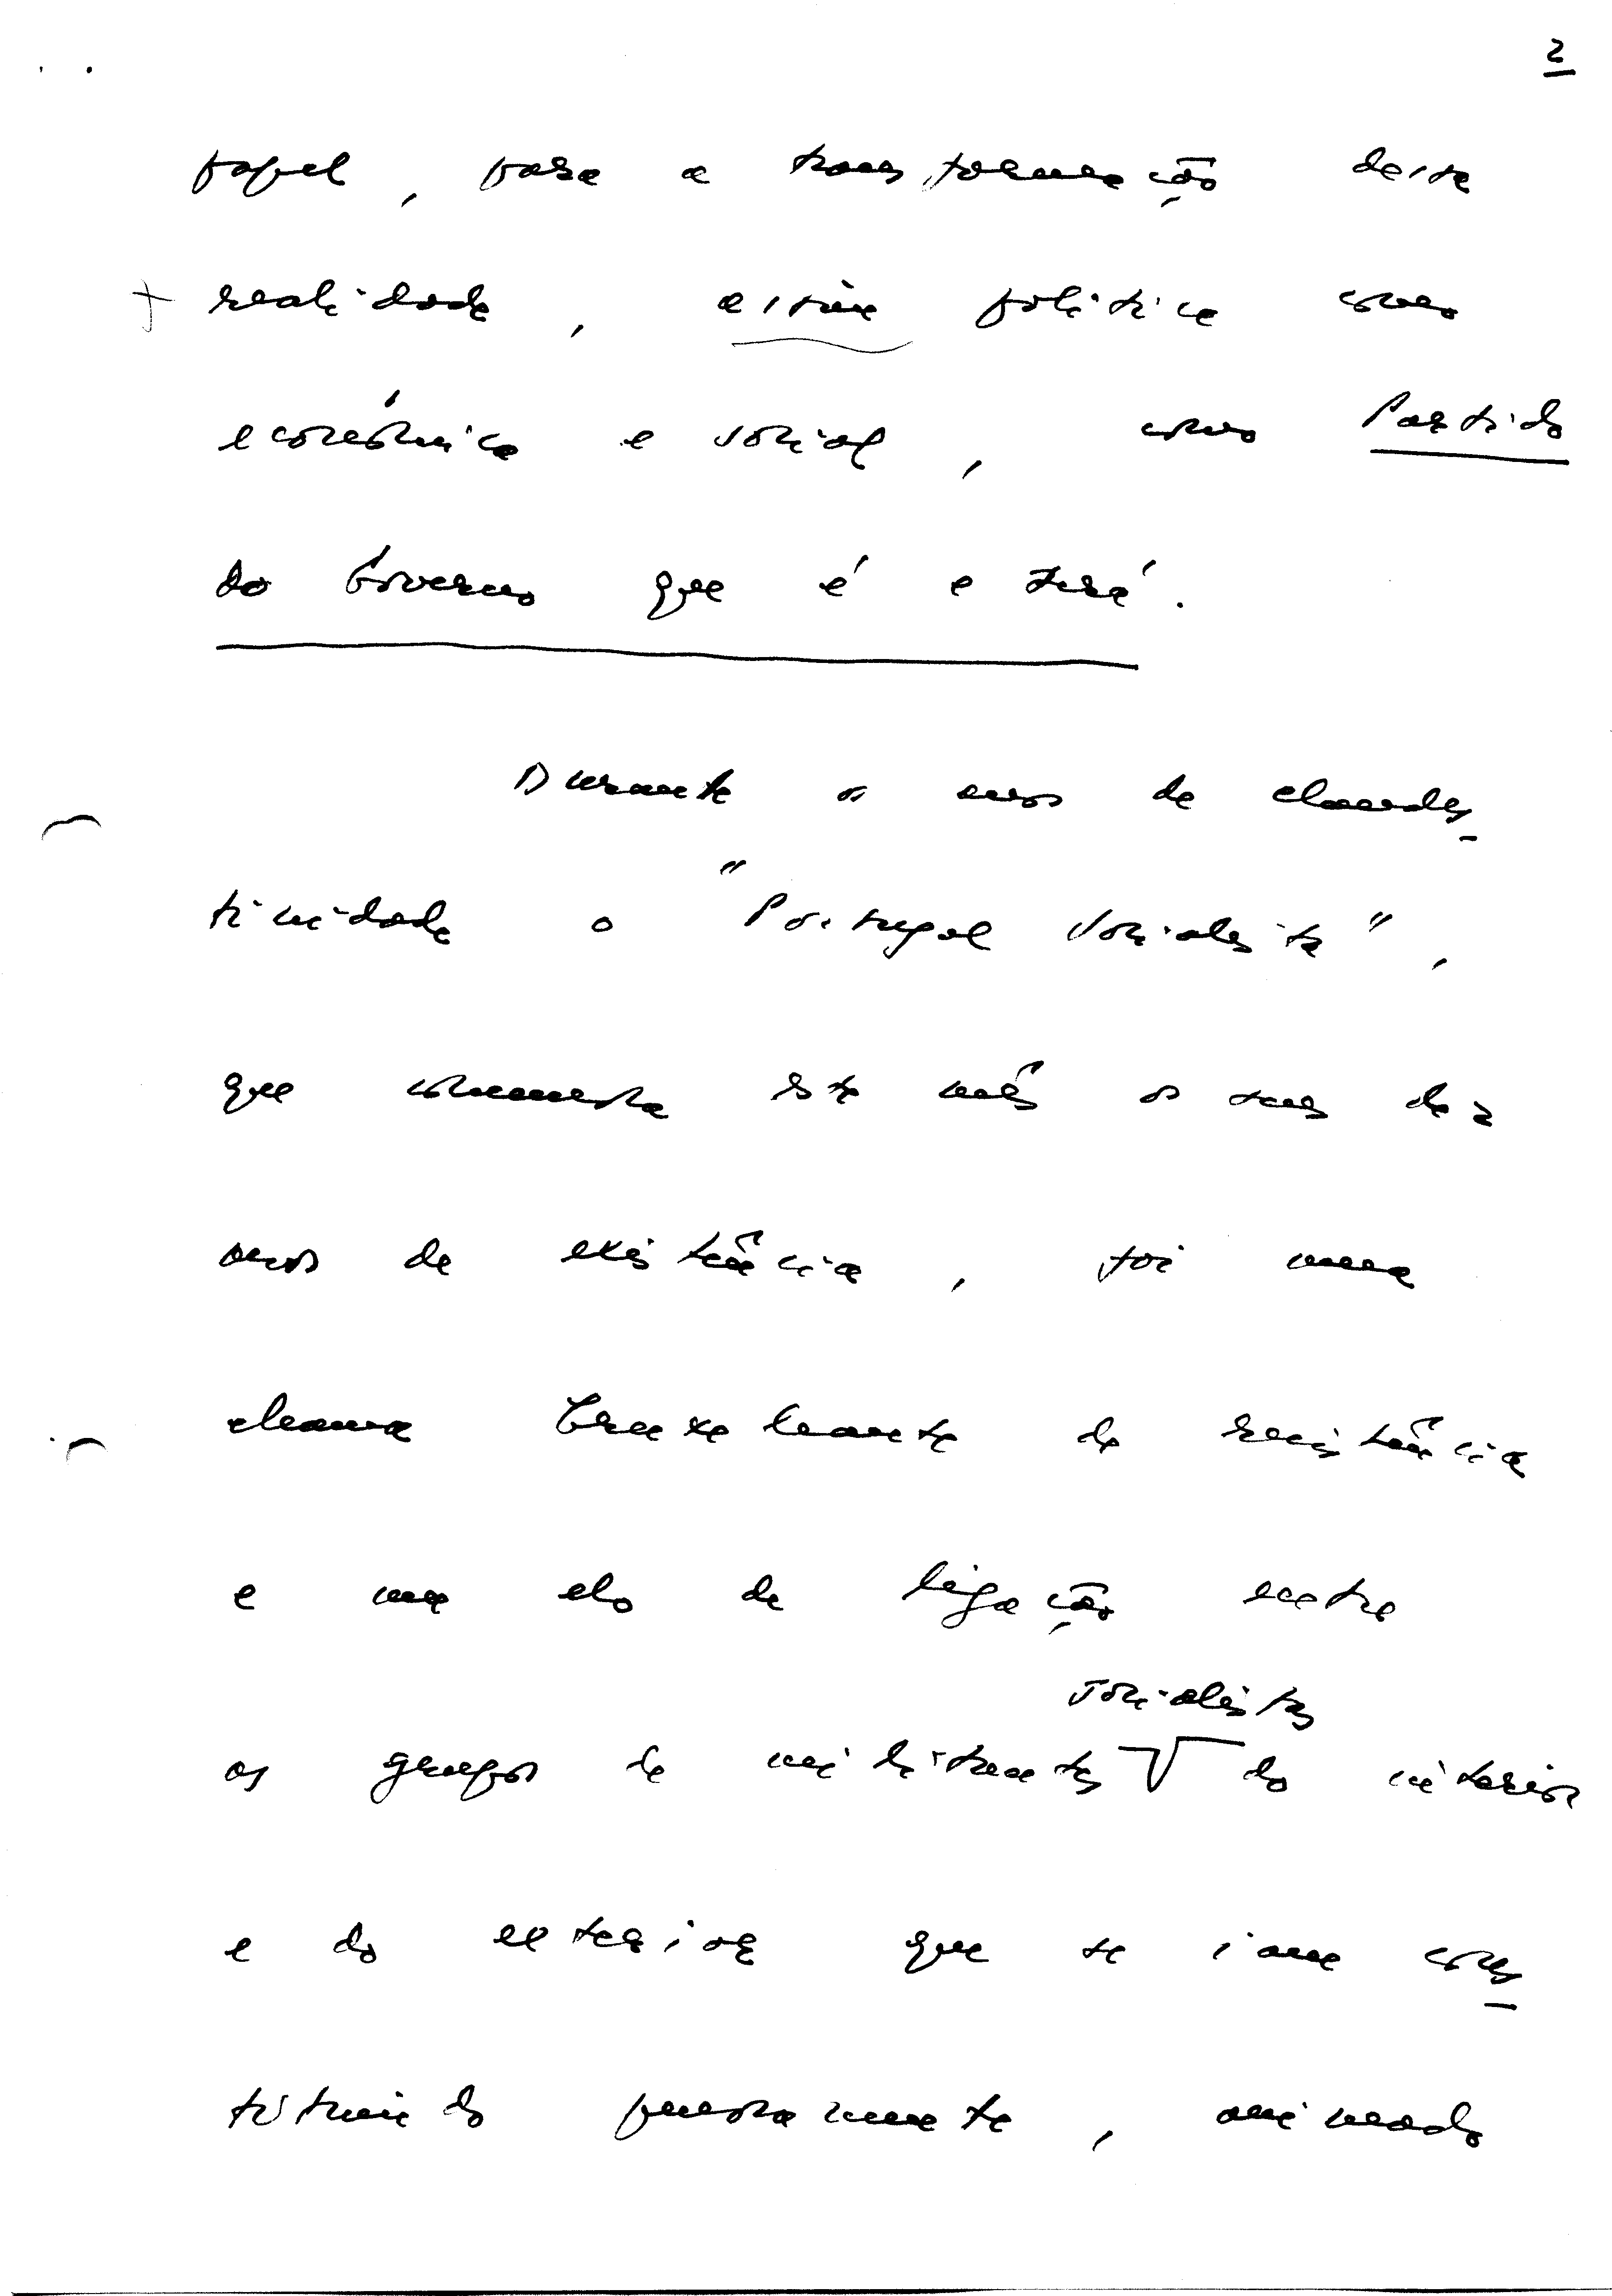 2
papel, para a transformação desta
+ realidade, assim política como
económica e social, como Partido
do Governo que é e será.
Durante os anos de clandes-
tinidade o "Portugal Socialista",
que comemora este mês os seus dez
anos de existência, foi uma
chama bruxuleante de resistência
e um elo de ligação entre
socialistas
os grupos de militantes do interior
e do exterior que se iam cons-
tituindo penosamente, animado